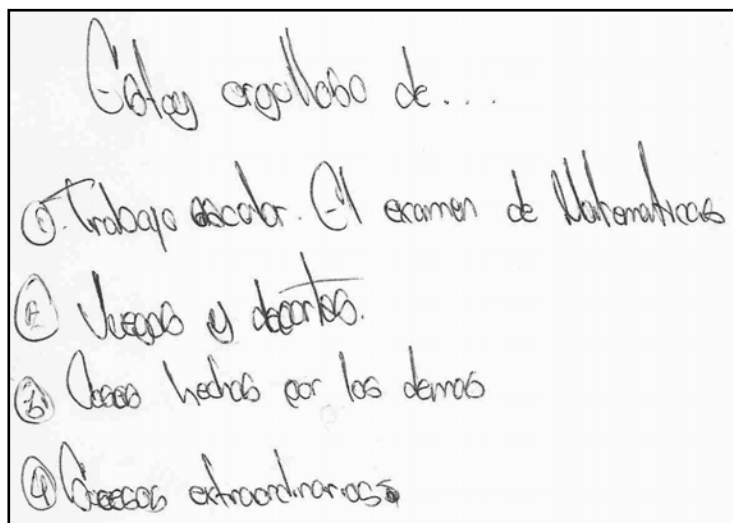 Estoy orgulloso de....
① Trabajo escolar. El examen de Matematicas
② Juegos y deportes.
③ Cosas hechas por los demas
④ Cosas extraordinarias